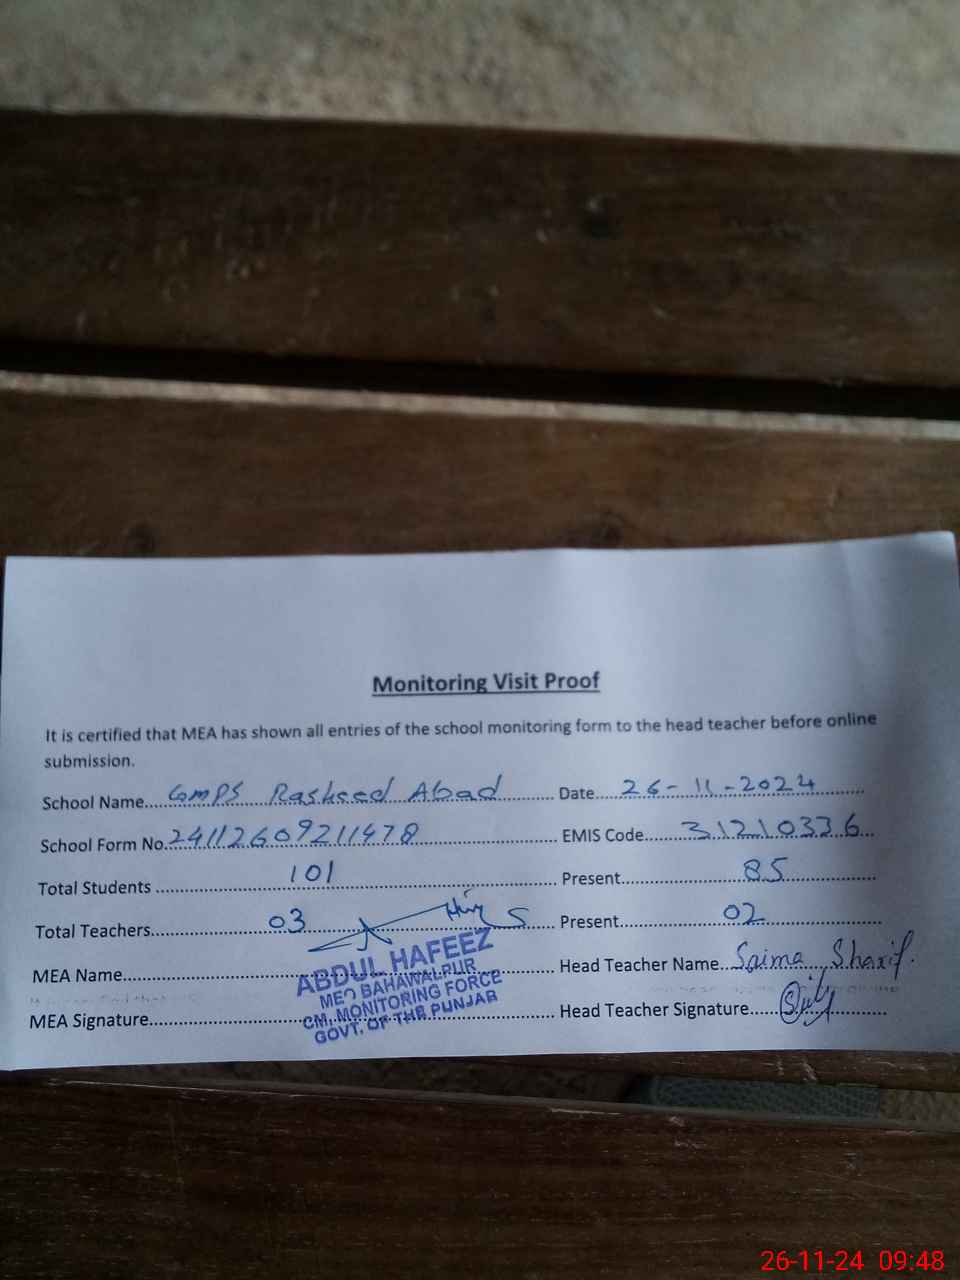 Monitoring Visit Proof
It is certified that MEA has shown all entries of the school monitoring form to the head teacher before online
submission.
School Name... GMPS Rasheed Abad ... Date... 26-11-2024
School Form No. 24112609211478 ... EMIS Code... 31210336
Total Students ... 101 ... Present... 85
Total Teachers... 03 ... Present... 02
MEA Name... Head Teacher Name... Saima Sharif.
MEA Signature... Head Teacher Signature...
ABDUL HAFEEZ
MEO BAHAWALPUR
CM, MONITORING FORCE
GOVT. OF THE PUNJAB
26-11-24 09:48